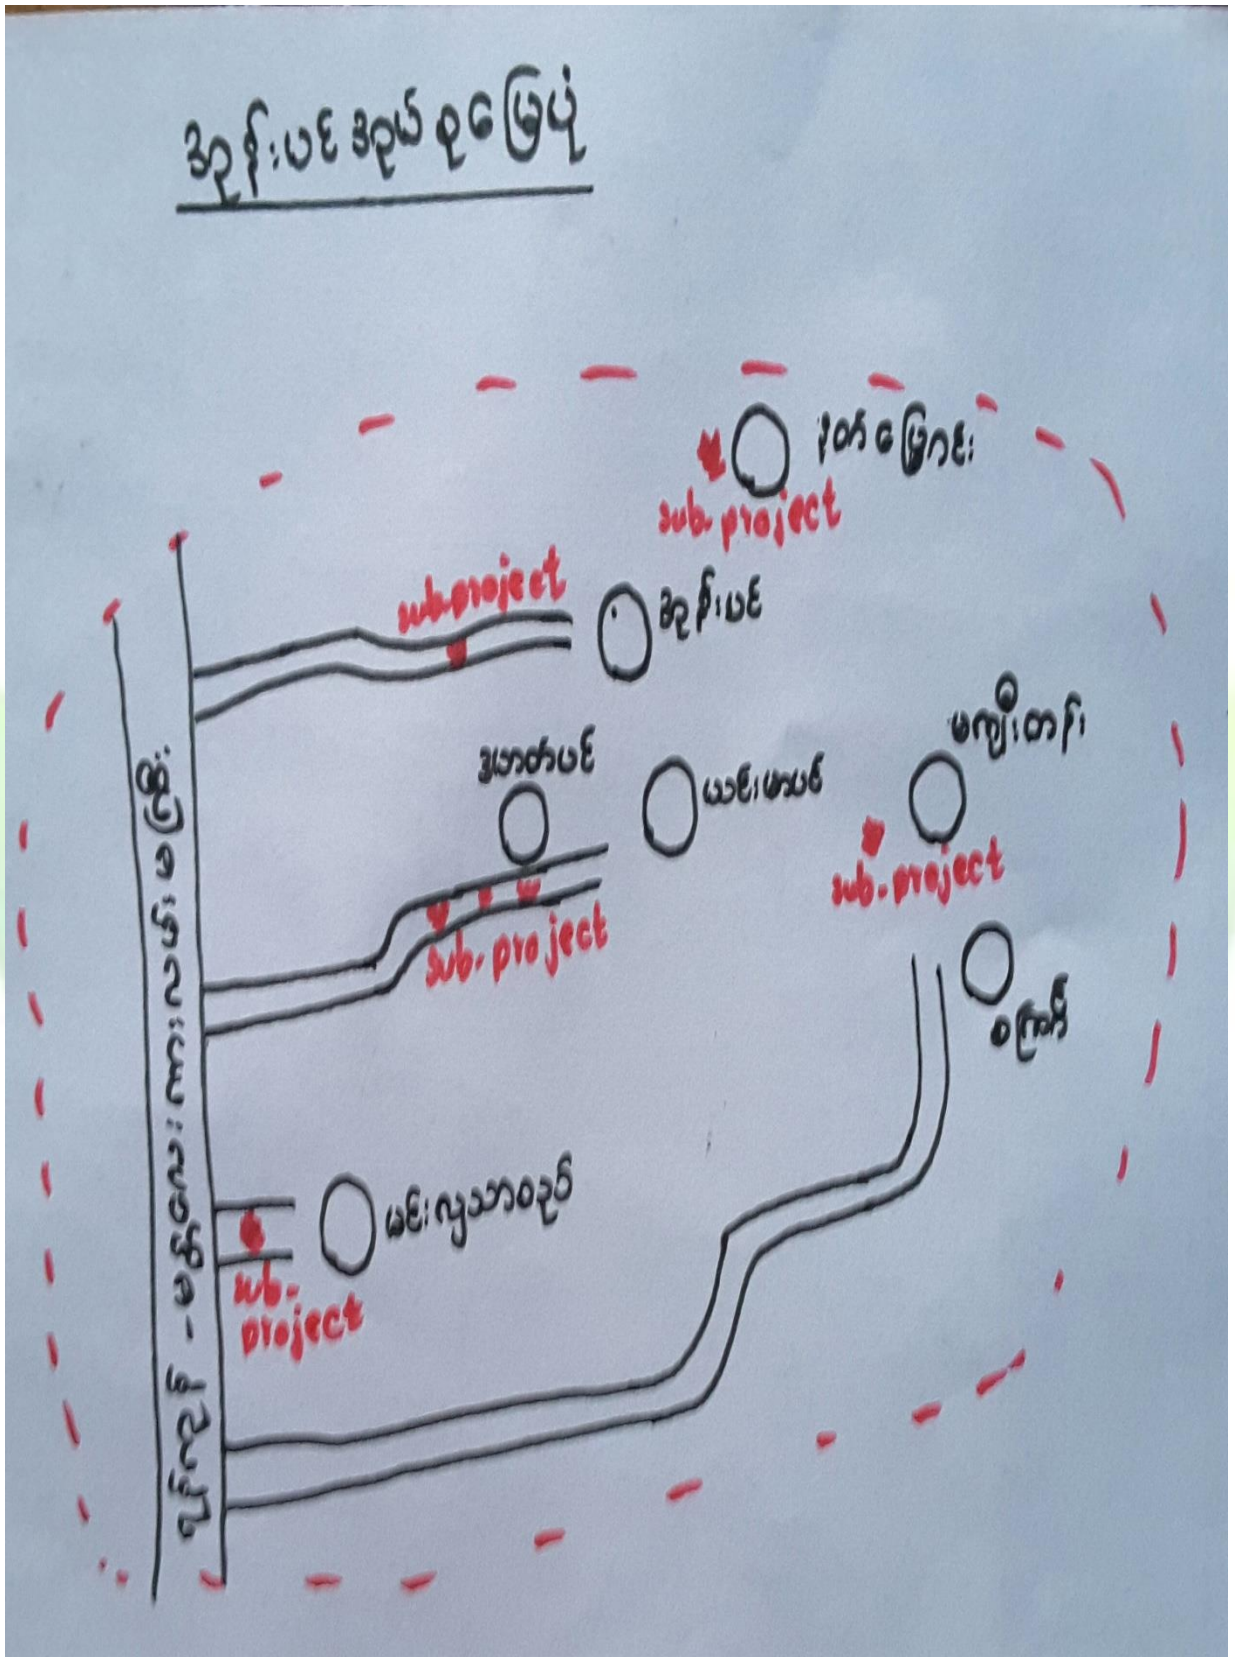 အုန်းပင်အုပ်စုမြေပုံ
နတ်မြောင်း
sub-project
sub-project
အုန်းပင်
မကျီးတန်း
ဒဟတ်ပင်
ယင်းမာပင်
sub-project
sub-project
စကြာကီ
မင်းလှသာစည်
sub-
project